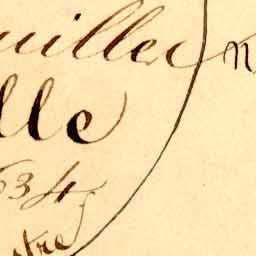 uiller
lle
634
tre